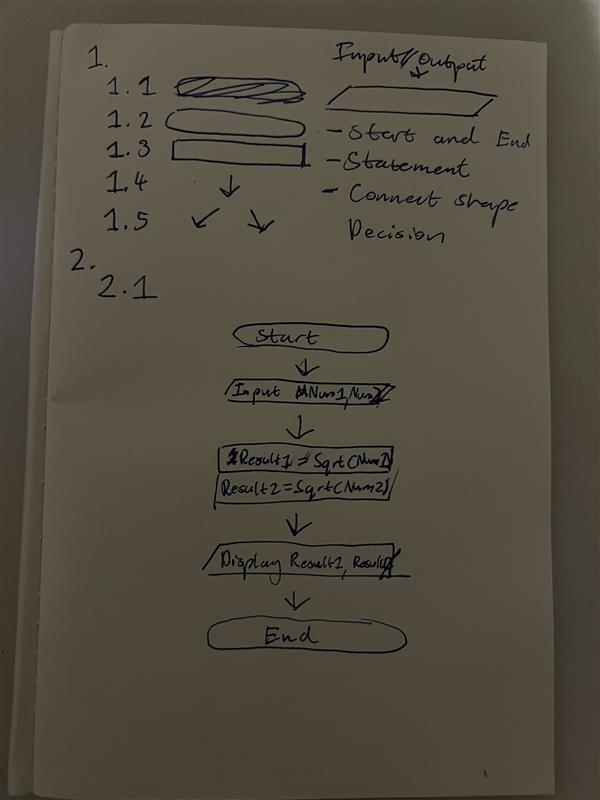 1.
Input/Output
1.1
1.2
- Start and End
1.3
- Statement
1.4
- Connect shape
1.5
Decision
2.
2.1
Start
Input Num1, Num2
Result1 = Sqrt(Num1)
Result2 = Sqrt(Num2)
Display Result1, Result2
End